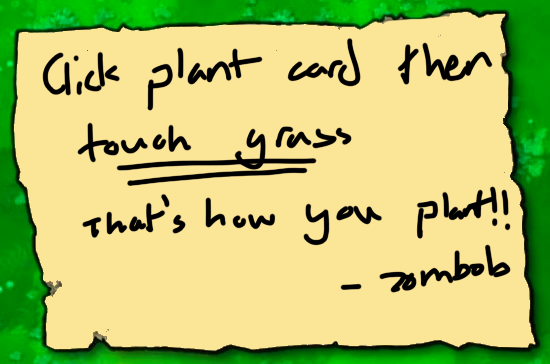 Click plant card then
touch grass
That's how you plant!!
- zombob